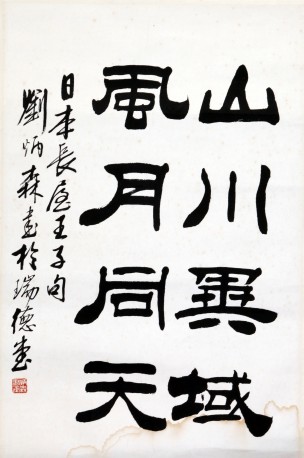 山川異域
風月同天
日本長屋王子句
劉炳森書於瑞德畫